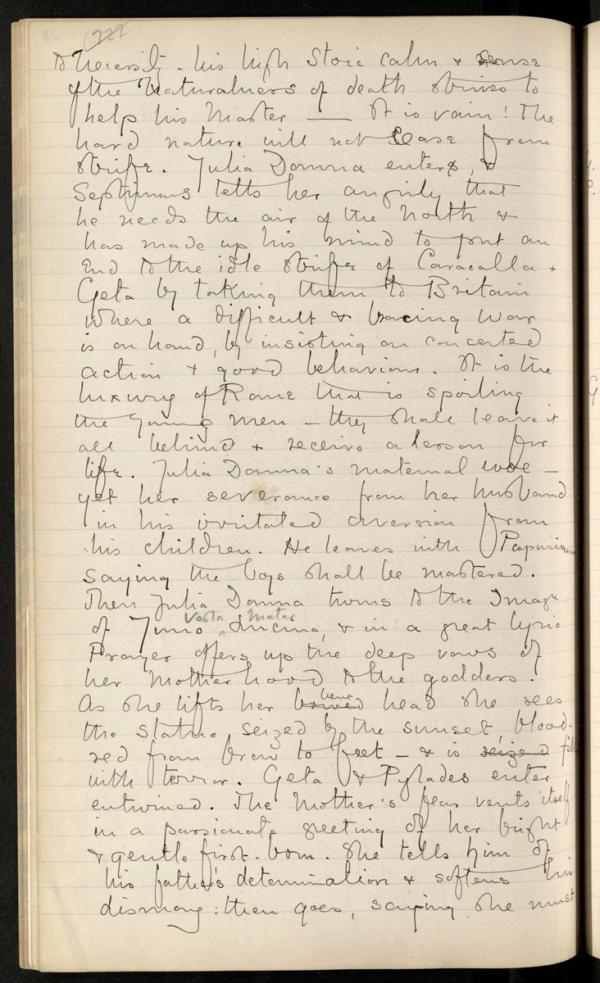 222
to Necessity – his high Stoic calm & sense
of the Naturalness of death strives to
help his Master — It is vain! The
hard nature will not cease from
strife. Julia Domna enters, &
Septimus tells her angrily that
he needs the air of the North &
has made up his mind to put an
End to the idle strife of Caracalla &
Geta by taking them to Britain
where a difficult & bracing war
is on hand, by insisting on concerted
action & good behaviour. It is the
luxury of Rome that is spoiling
the young men – they shall leave it
all behind & receive a lesson for
life. Julia Domna's maternal woe –
yet her severance from her husband
in his irritated aversion from
his children. He leaves with Papinian
saying the boys shall be mastered.
Then Julia Domna turns to the Image
Vesta Mater
of Juno Lucina, & in a great lyric
Prayer offers up the deep vows of
her Motherhood to the goddess.
bent
As she lifts her bowed head she sees
the statue seized by the sunset, blood-
red from brow to feet – & is seized fill
with terror. Geta & Pylades enter
entwined. The Mother's fear vents itself
in a passionate greeting of her bright
& gentle first-born. She tells him of
his father's determination & softens his
dismay: then goes, saying she must